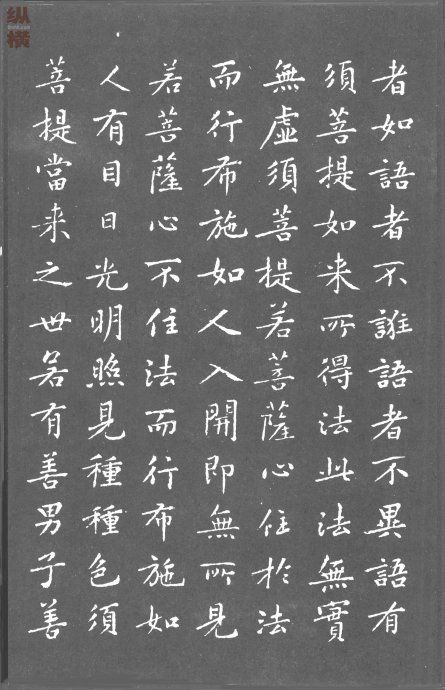 纵横
者如語者不誑語者不異語有
須菩提如来所得法此法無實
無虛須菩提若菩薩心住於法
而行布施如人入開即無所見
若菩薩心不住法而行布施如
人有目日光明照見種種色須
菩提當来之世若有善男子善